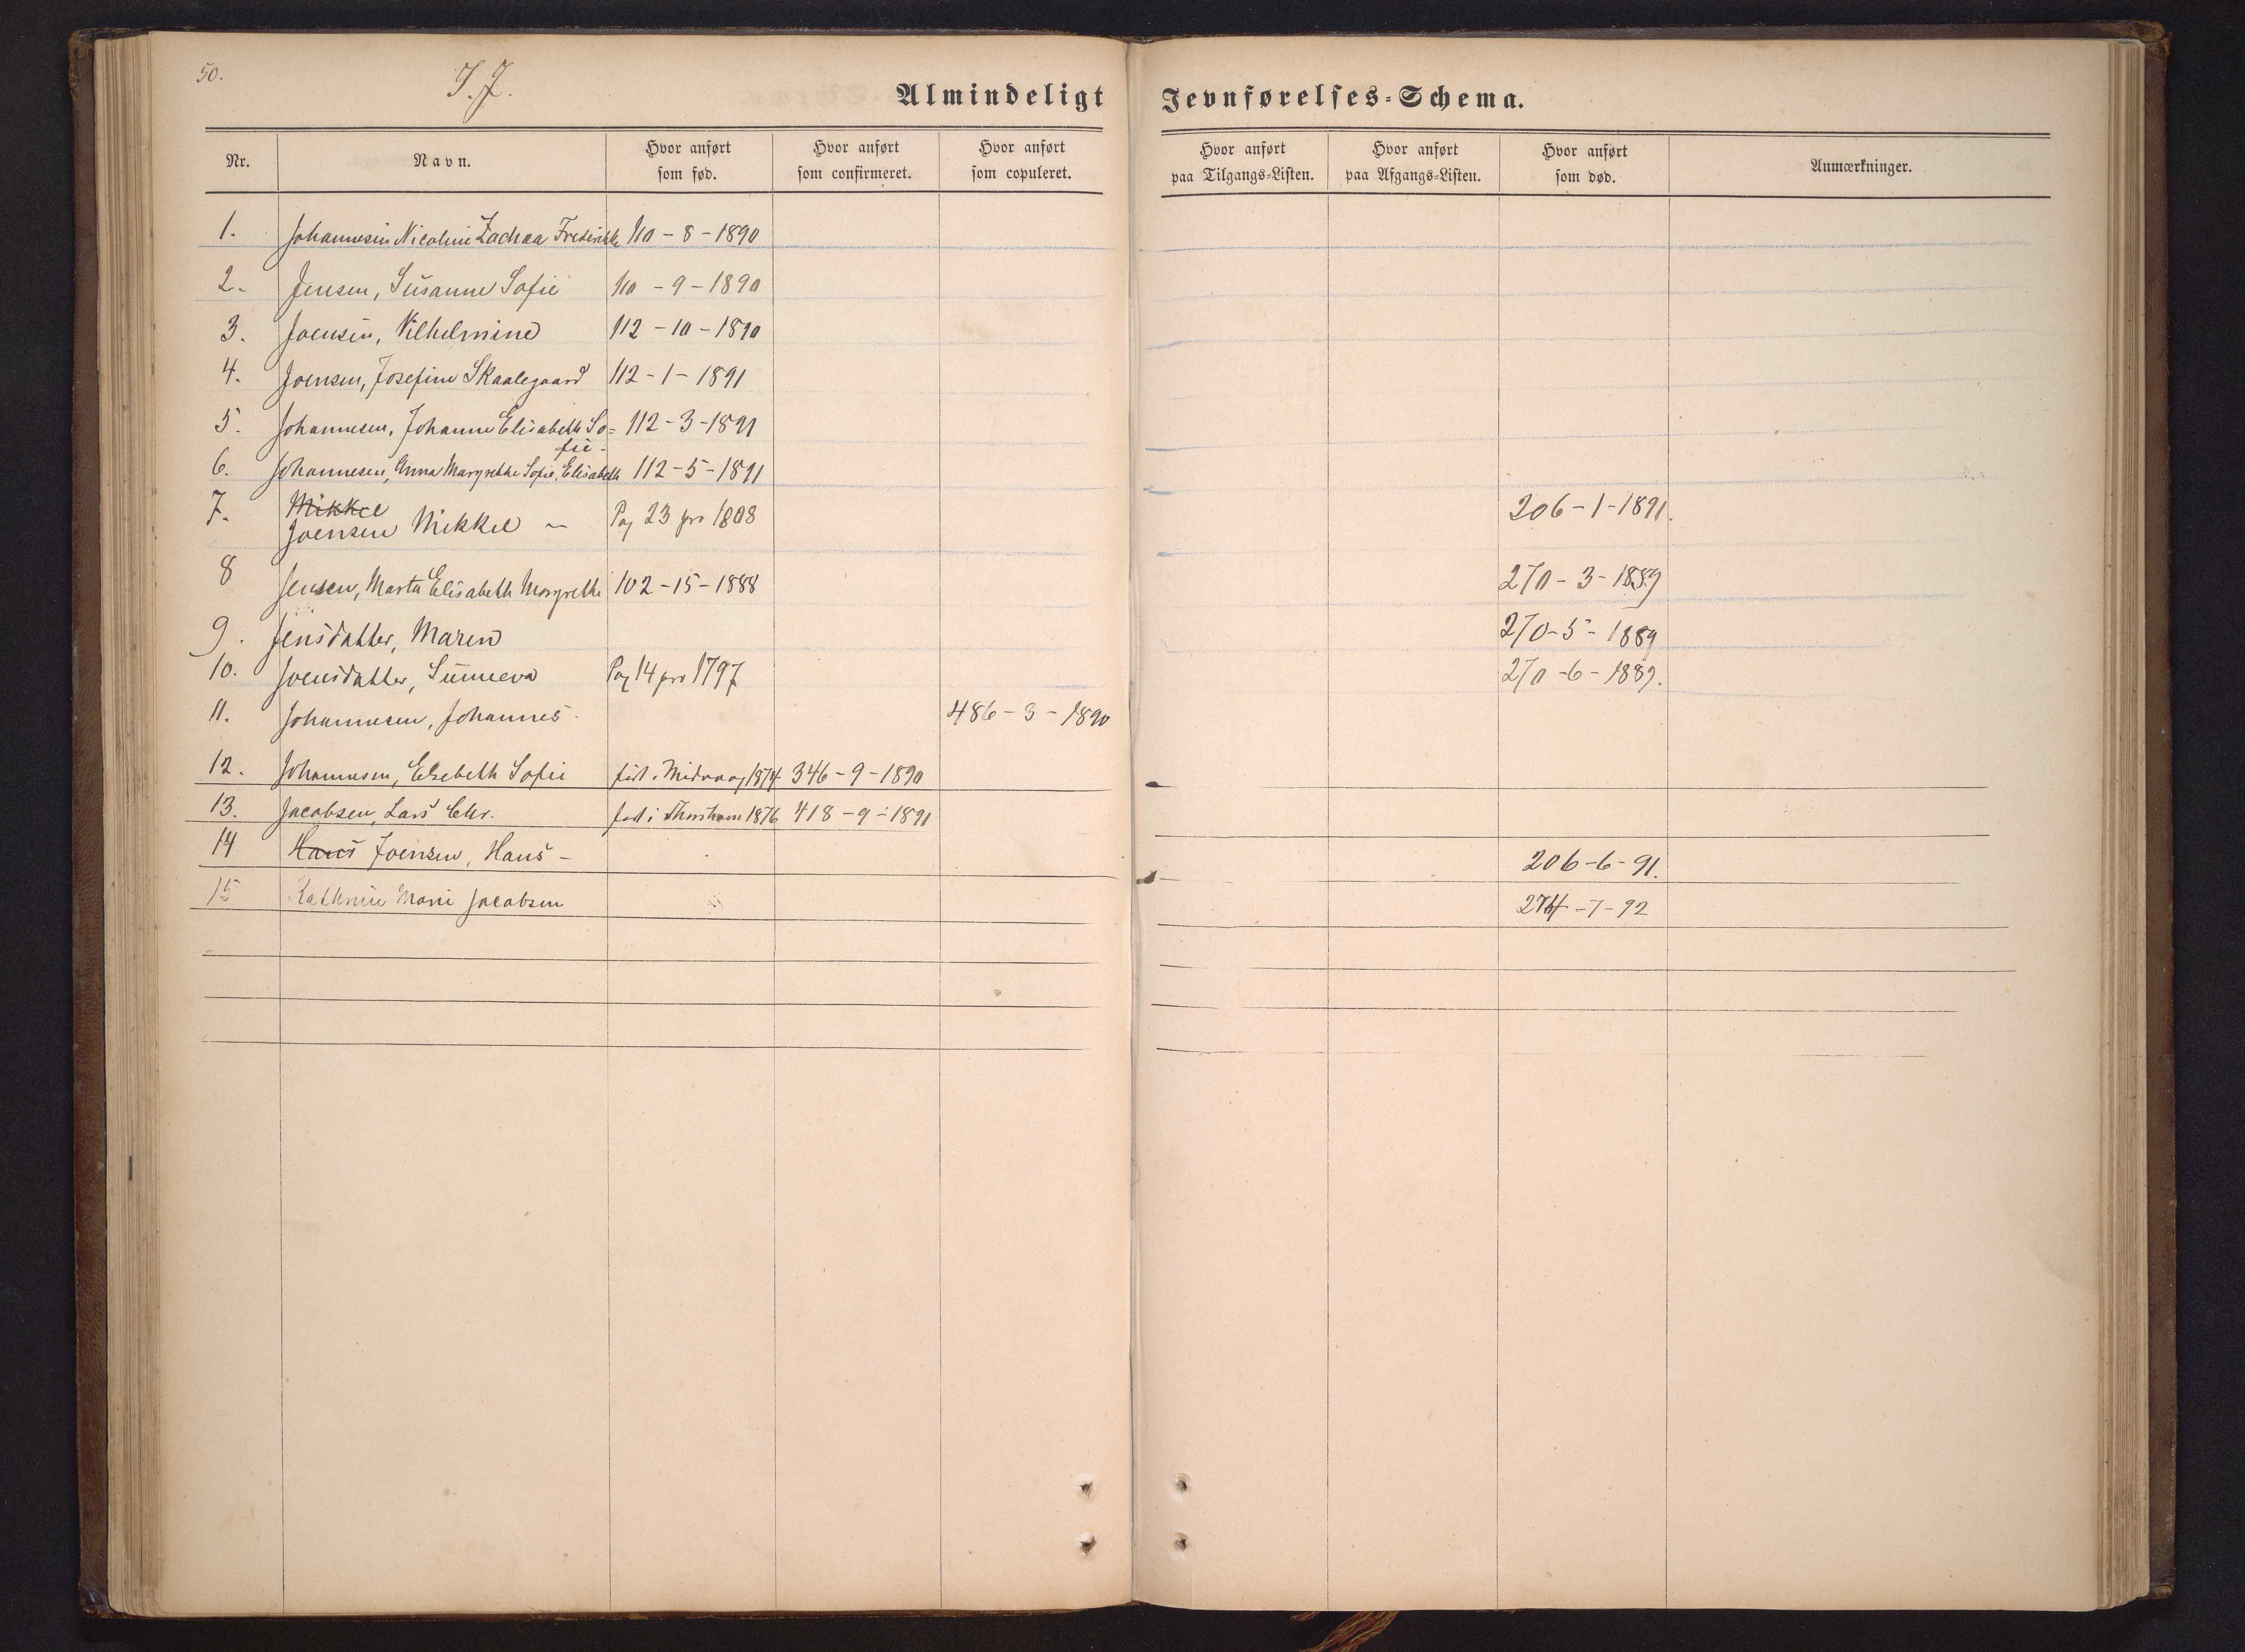 50.
I. J.
Almindeligt Jevnførelses-Schema.
Nr. Navn. Hvor anført som fød. Hvor anført som confirmeret. Hvor anført som copuleret. Hvor anført paa Tilgangs-Listen. Hvor anført paa Afgangs-Listen. Hvor anført som død. Anmærkninger.
1. Johannesen Nicoline Zachaa Frederikke 110 - 8 - 1890
2. Jensen, Susanne Sofie 110 - 9 - 1890
3. Joensen, Vilhelmine 112 - 10 - 1890
4. Joensen, Josefine Skaalegaard 112 - 1 - 1891
5. Johannesen, Johanne Elisabeth So= 112 - 3 - 1891
fie -
6. Johannesen, Anna Margrethe Sofie, Elisabeth 112 - 5 - 1891
7. Mikkel
Joensen Mikkel — Pag 23 pro 1808 206 - 1 - 1891.
8 Jensen, Marta Elisabeth Margrethe 102 - 15 - 1888 270 - 3 - 1889
9. Jensdatter, Maren 270 - 5 - 1889
10. Joensdatter, Sunneva Pag 14 pro 1797 270 - 6 - 1889.
11. Johannesen, Johannes 486 - 3 - 1890
12. Johannesen, Elsebeth Sofie født i Midvaag 1874 346 - 9 - 1890
13. Jacobsen, Lars Chr. født i Thorshavn 1876 418 - 9 - 1891
14 Hans Joensen, Hans - 206 - 6 - 91.
15 Kathrine Marie Jacobsen 274 - 7 - 92